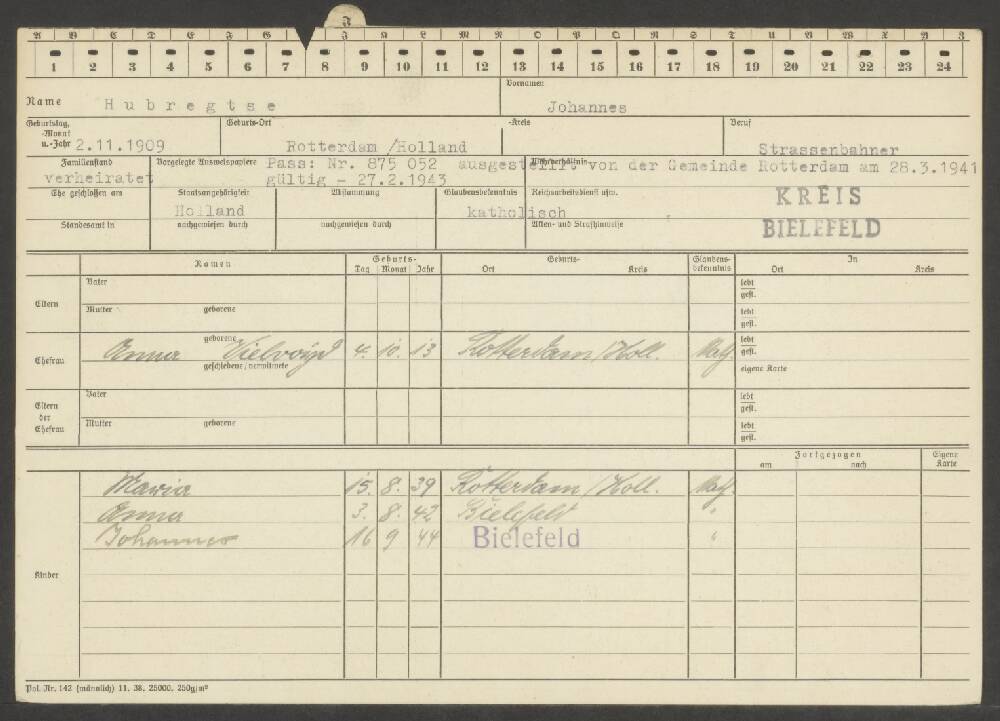 J
A B C D E F G J K L M N O P Q R S T U V W X Y Z
1 2 3 4 5 6 7 8 9 10 11 12 13 14 15 16 17 18 19 20 21 22 23 24
Name Hubregtse Vornamen Johannes
Geburtstag, -Monat u.-Jahr 2.11.1909 Geburts-Ort Rotterdam /Holland -Kreis Beruf Strassenbahner
Familienstand verheiratet Vorgelegte Ausweispapiere Pass: Nr. 875 052 ausgestellt von der Gemeinde Rotterdam am 28.3.1941
gültig - 27.2.1943
Ehe geschlossen am Staatsangehörigkeit Holland Abstammung Glaubensbekenntnis katholisch Reichsarbeitsdienst usw. KREIS
Standesamt in nachgewiesen durch nachgewiesen durch Akten- und Strafhinweise BIELEFELD
Namen Geburts- Geburts- Glaubens-bekenntnis In
Tag Monat Jahr Ort Kreis Ort Kreis
Eltern Vater lebt gest.
Mutter geborene lebt gest.
Ehefrau Anna geborene 4. 10. 13 Rotterdam/Holl. Kath. lebt gest.
geschiedene/verwitwete eigene Karte
Eltern der Ehefrau Vater lebt gest.
Mutter geborene lebt gest.
Fortgezogen Eigene Karte
am nach
Maria 15. 8. 39 Rotterdam/Holl. Kath.
Anna 3. 8. 42 Bielefeld "
Johannes 16 9 44 Bielefeld "
Kinder
Pol. Nr. 142 (männlich) 11. 38. 25000. 250g/m²